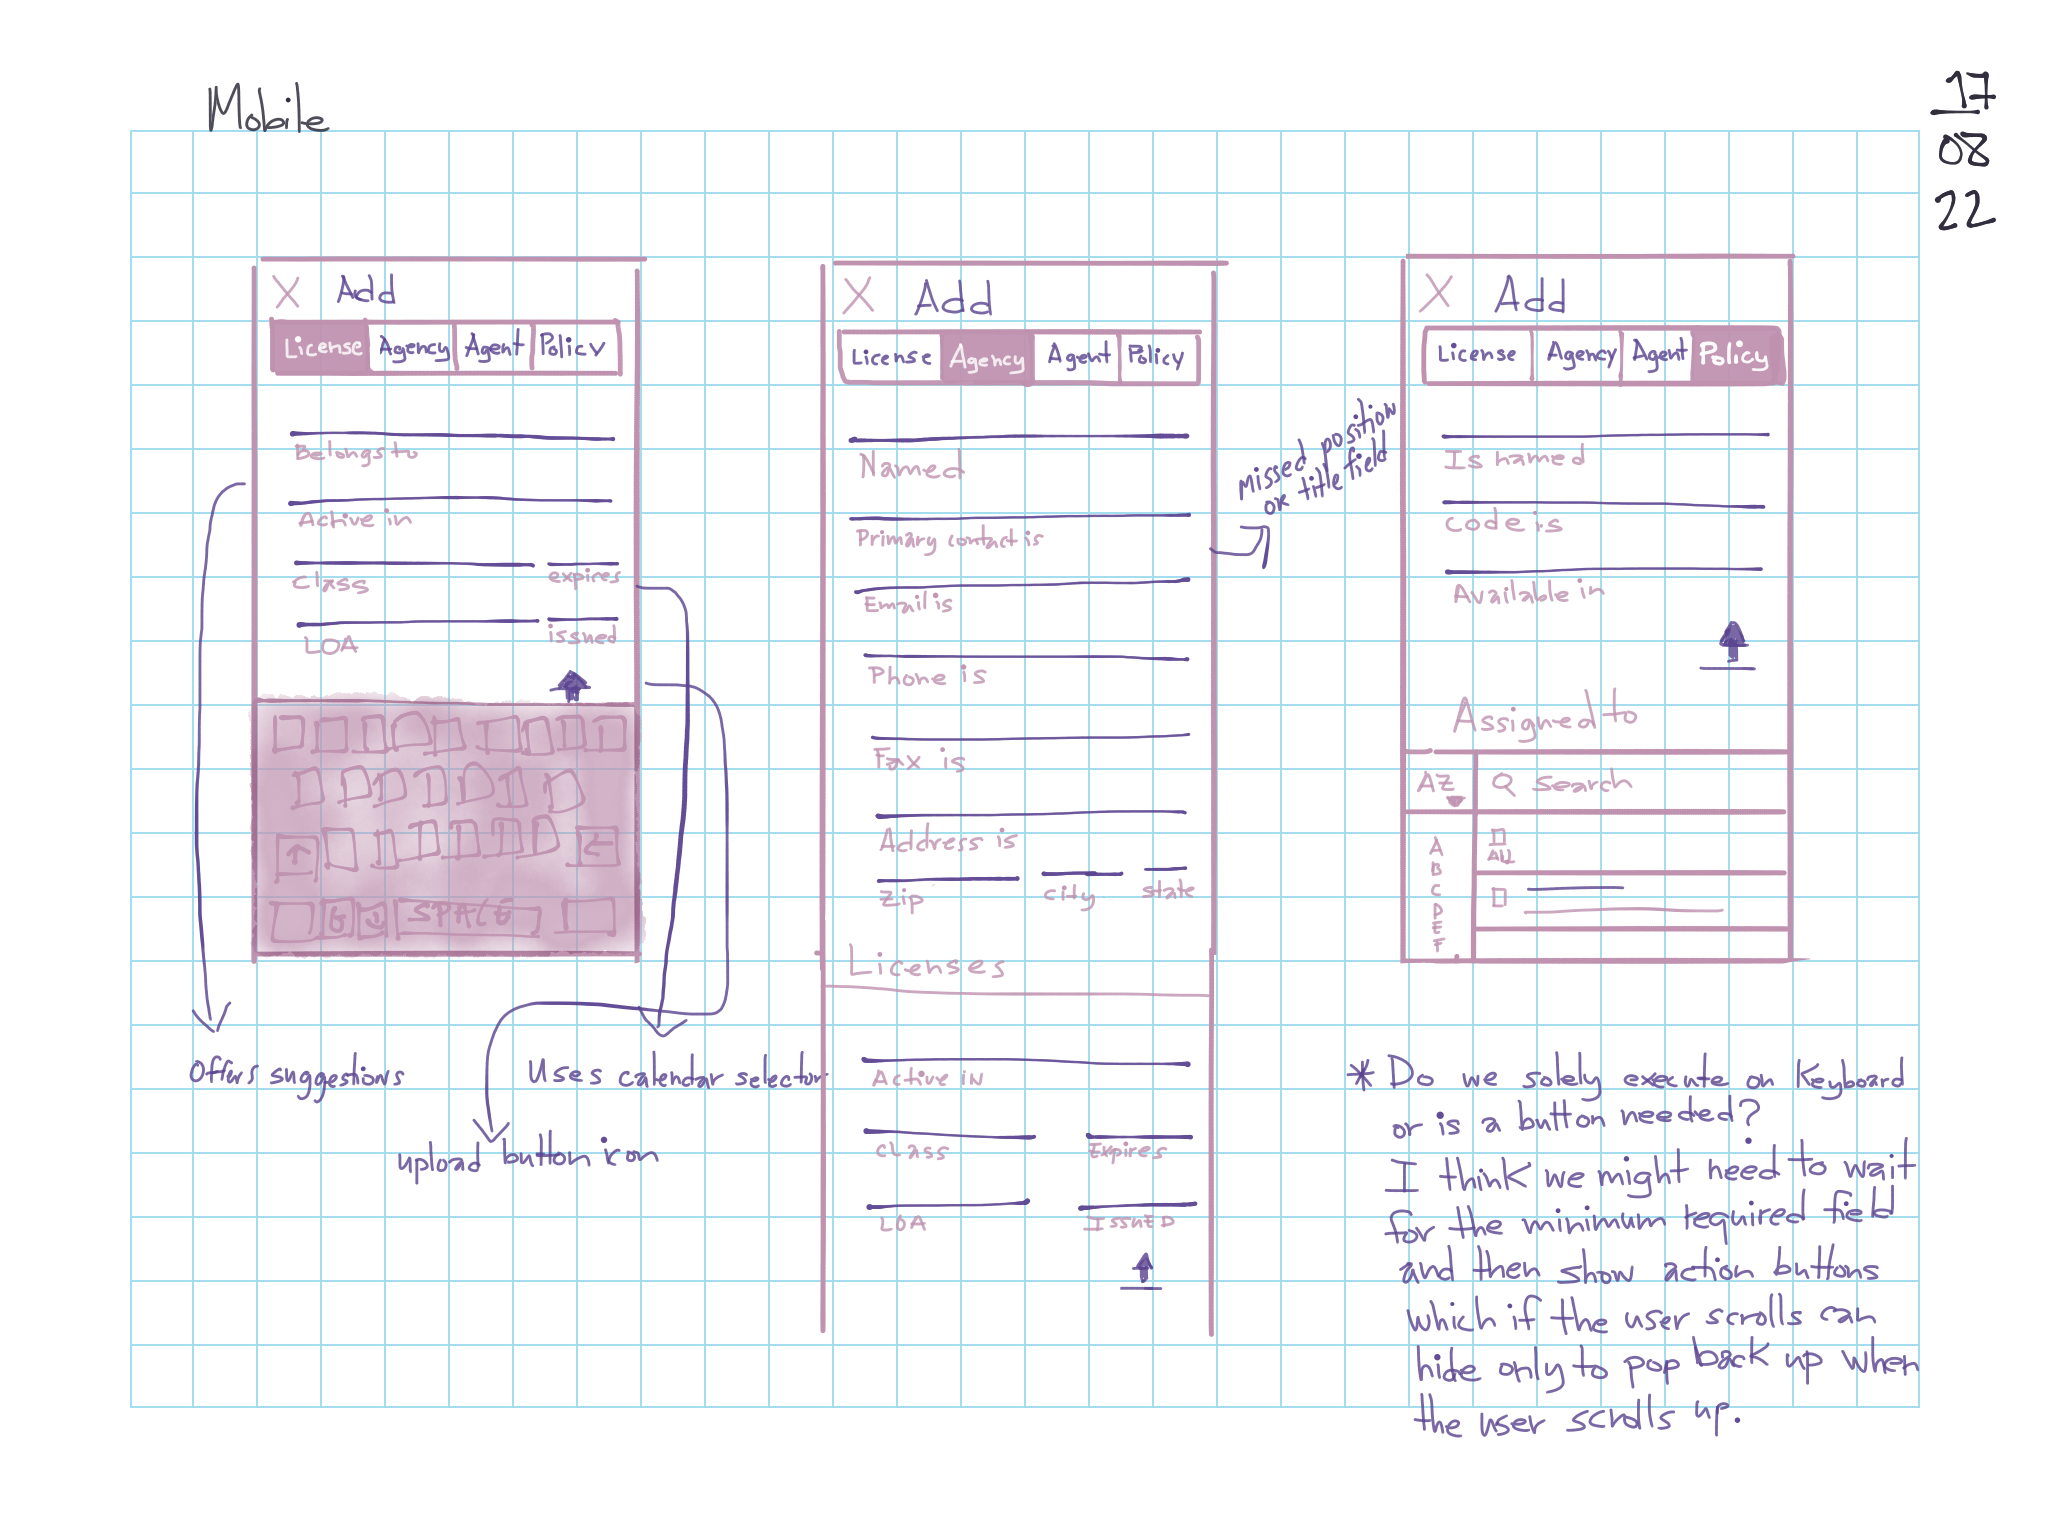 Mobile
17
08
22
X Add
License Agency Agent Policy
Belongs to
Active in
Class expires
LOA issued
SPACE
Offers suggestions
Uses calendar selector
upload button icon
X Add
License Agency Agent Policy
Named
Primary contact is
Email is
Phone is
Fax is
Address is
Zip city state
Licenses
Active in
class Expires
LOA Issued
missed position
or title field
X Add
License Agency Agent Policy
Is named
Code is
Available in
Assigned to
AZ Search
A
B
C
D
E
F
ALL
* Do we solely execute on Keyboard
or is a button needed?
I think we might need to wait
for the minimum required field
and then show action buttons
which if the user scrolls can
hide only to pop back up when
the user scrolls up.